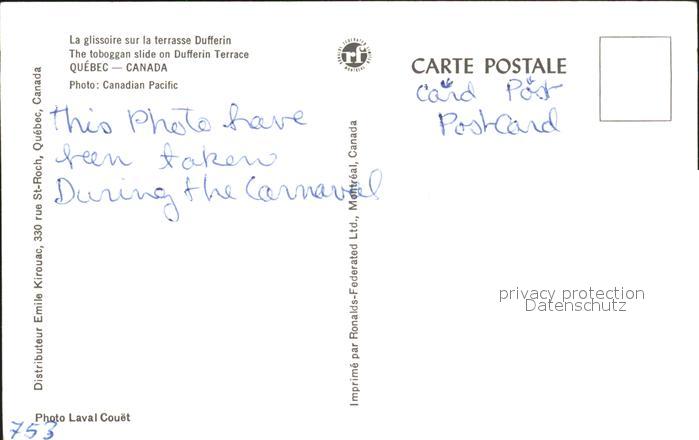 La glissoire sur la terrasse Dufferin
The toboggan slide on Dufferin Terrace
QUÉBEC — CANADA
Photo: Canadian Pacific
This Photo have
been taken
During the Carnaval
Distributeur Emile Kirouac, 330 rue St-Roch, Québec, Canada
Photo Laval Couët
753
Imprimé par Ronalds-Federated Ltd., Montréal, Canada
CARTE POSTALE
Card Post
PostCard
privacy protection
Datenschutz